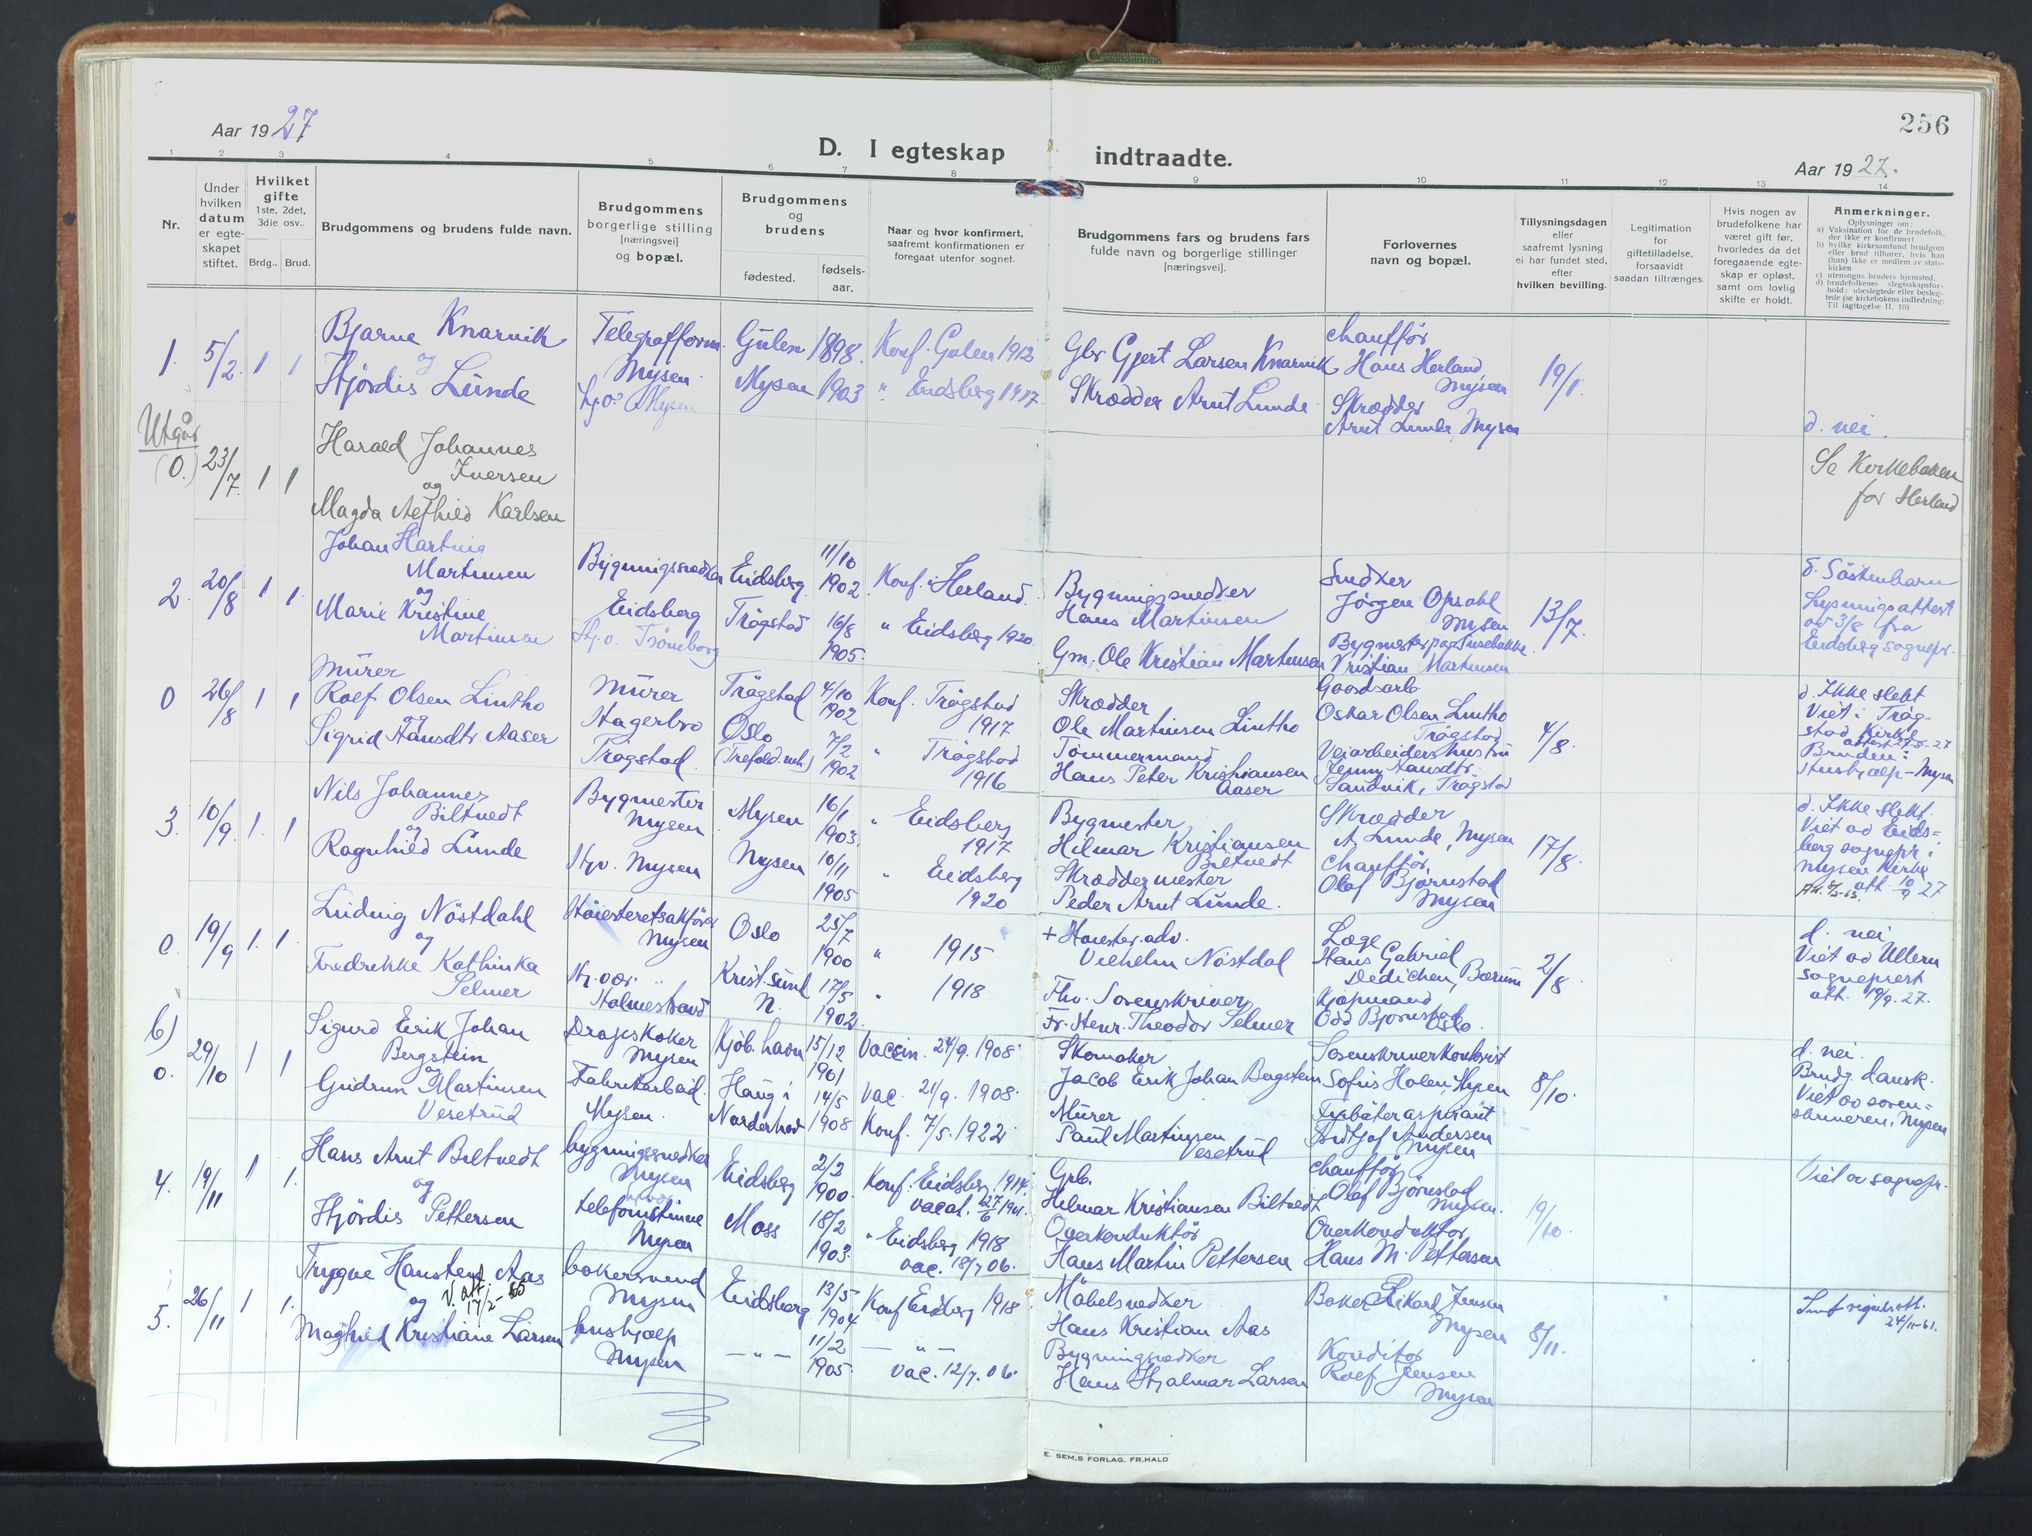 256
Aar 1927
D. I egteskap indtraadte.
Aar 1927.
1 2 3 4 5 6 7 8 9 10 11 12 13 14
Nr.
Under hvilken datum er egteskapet stiftet.
Hvilket gifte 1ste, 2det, 3die osv..
Brdg.. Brud.
Brudgommens og brudens fulde navn.
Brudgommens borgerlige stilling [næringsvei] og bopæl.
Brudgommens og brudens
fødested. fødselsaar.
Naar og hvor konfirmert, saafremt konfirmationen er foregaat utenfor sognet.
Brudgommens fars og brudens fars fulde navn og borgerlige stillinger [næringsvei].
Forlovernes navn og bopæl.
Tillysningsdagen eller saafremt lysning ei har fundet sted, efter hvilken bevilling.
Legitimation for giftetilladelse, forsaavidt saadan tiltrænges.
Hvis nogen av brudefolkene har været gift før, hvorledes da det foregaaende egteskap er opløst, samt om lovlig skifte er holdt.
Anmerkninger.
Oplysninger om:
a) Vaksination for de brudefolk, der ikke er konfirmert
b) hvilke kirkesamfund brudgom eller brud tilhører, hvis han (hun) ikke er medlem av statskirken
c) utensogns bruders hjemsted.
d) brudefolkenes slegtsskapsforhold: ubeslegtede eller beslegtede (se kirkebokens indledning: Til iagttagelse II. 10)
1. 5/2 1 1
Bjarne Knarvik
og
Hjördis Lunde
Telegrafform.
Mysen.
Hj.v. Mysen
Gulen 1898.
Mysen 1903
Konf. Gulen 1912
" Eidsberg 1917
Gbr Gjert Larsen Knarvik
Skrædder Arnt Lunde
Chauffør
Hans Herland,
Mysen
Skrædder
Arnt Lunde, Mysen
19/1
d. nei.
Utgår
(0.) 23/7. 1 1
Harald Johannes
Iversen
og
Magda Alfhild Karlsen
Se Kirkeboken
for Herland
2. 20/8 1 1.
Johan Hartvig
Martinsen
og
Marie Kristine
Martinsen
Bygningssnedker
Eidsberg
Hj.v. Trömborg
Eidsberg 11/10 1902
Trögstad 16/8 1905.
Konf. i Herland.
" Eidsberg 1920
Bygningssnedker
Hans Martinsen
Gm. Ole Kristian Martinsen
Snedker
Jörgen Opsahl
Mysen
Bygmester
Kristian Martinsen
13/7.
d. Söskenbarn
Lysningsattest
av 3/8 fra
Eidsberg sognepr.
0 26/8 1 1
Murer
Rolf Olsen Lintho
og
Sigrid Hansdtr. Aaser
Murer
Hagerbro
Trögstad.
Trögstad 4/10 1902
Oslo 7/2 1902
(Trefold. mh.)
Konf. Trögstad
1917
" Trögstad
1916
Skrædder
Ole Martinsen Lintho
Tömmermand
Hans Peter Kristiansen
Aaser
Gaardsarb
Oskar Olsen Lintho
Trögstad
Veiarbeiders hustru
Jenny Hansdtr.
Sandvik, Trögstad
4/8.
d. Ikke slekt
Viet i Trög-
stad Kirke
attest 27/8-27
Bruden:
Hushjælp - Mysen
3. 10/9. 1. 1
Nils Johannes
Biltvedt
og
Ragnhild Lunde
Bygmester
Mysen
Hjv. Mysen
Mysen 16/1 1903.
Mysen 10/11 1905
" Eidsberg
1917
" Eidsberg
1920
Bygmester
Hilmar Kristiansen
Biltvedt
Skræddermester
Peder Arnt Lunde.
Skrædder
A. Lunde, Mysen
Chauffør
Olaf Bjørnstad
Mysen
17/8.
d. Ikke slekt.
Viet av Eids-
berg sognepr. i
Mysen Kirke
att. 10/9 27
0 19/9 1. 1.
Ludvig Nöstdahl
og
Fredrikke Kathinka
Selmer
Höiesteretsakförer
Mysen
Hj. vær.
Holmestrand
Oslo 25/7 1900
Krist.sund N. 17/5 1902
" 1915
" 1918
+ Høiester. adv.
Vilhelm Nöstdal
Fhv. Sorenskriver
Fr. Henr. Theodor Selmer
Læge
Hans Gabriel
Dedichen, Bærum
Kjøpmand
Odd Bjørnstad
Oslo.
2/8
d. nei
Viet av Ullern
sogneprest
att. 19/9. 27.
b)
0. 29/10 1 1
Sigurd Eirik Johan
Bergstein
og
Gudrun Martinsen
Vesetrud
Drageskoker
Mysen
Fabrikarbeid.
Mysen.
Kjöb.havn 15/12 1901
Haug i
Norderhov 14/5 1908
Vaccin. 24/9. 1908.
vac. 21/9. 1908.
Konf. 7/5. 1922
Skomaker
Jacob Erik Johan Bergstein
Murer
Paul Martinsen
Vesetrud
Sorenskriverkontorist
Sofus Holen, Mysen
Fyrbøteraspirant
Fridtjof Andersen
Mysen
8/10.
d. nei.
Brudg. dansk.
Viet av soren-
skriveren, Mysen
4. 19/11 1 1.
Hans Arnt Biltvedt
og
Hjördis Pettersen
bygningssnedker
Mysen
telefonistinne
Mysen
Eidsberg 2/2 1900.
Moss 18/2 1903.
Konf. Eidsberg 1914.
vacat. 27/6 1901.
" Eidsberg 1918
vac. 18/7 06.
Grb.
Hilmar Kristiansen Biltvedt
Overkonduktør
Hans Martin Pettersen
Chauffør
Olaf Bjørnstad
Mysen.
Overkonduktør
Hans M. Pettersen
19/10.
Viet av sognepr.
5. 26/11 1 1.
Trygve Hansten Aas
og
V. att. 17/2-55
Maghild Kristiane Larsen
bakersvend
Mysen
hushjælp
Mysen
Eidsberg 13/5 1904
— " — 11/2 1905.
Konf. Eidsberg 1918
— " —
vac. 12/7. 06.
Möbelsnedker
Hans Kristian Aas
Bygningsnedker
Hans Hjalmar Larsen
Baker Rikard Jensen
Mysen
Konditor
Rolf Jensen
Mysen
8/11.
24/11-61.
E. SEM,S FORLAG, FR.HALD